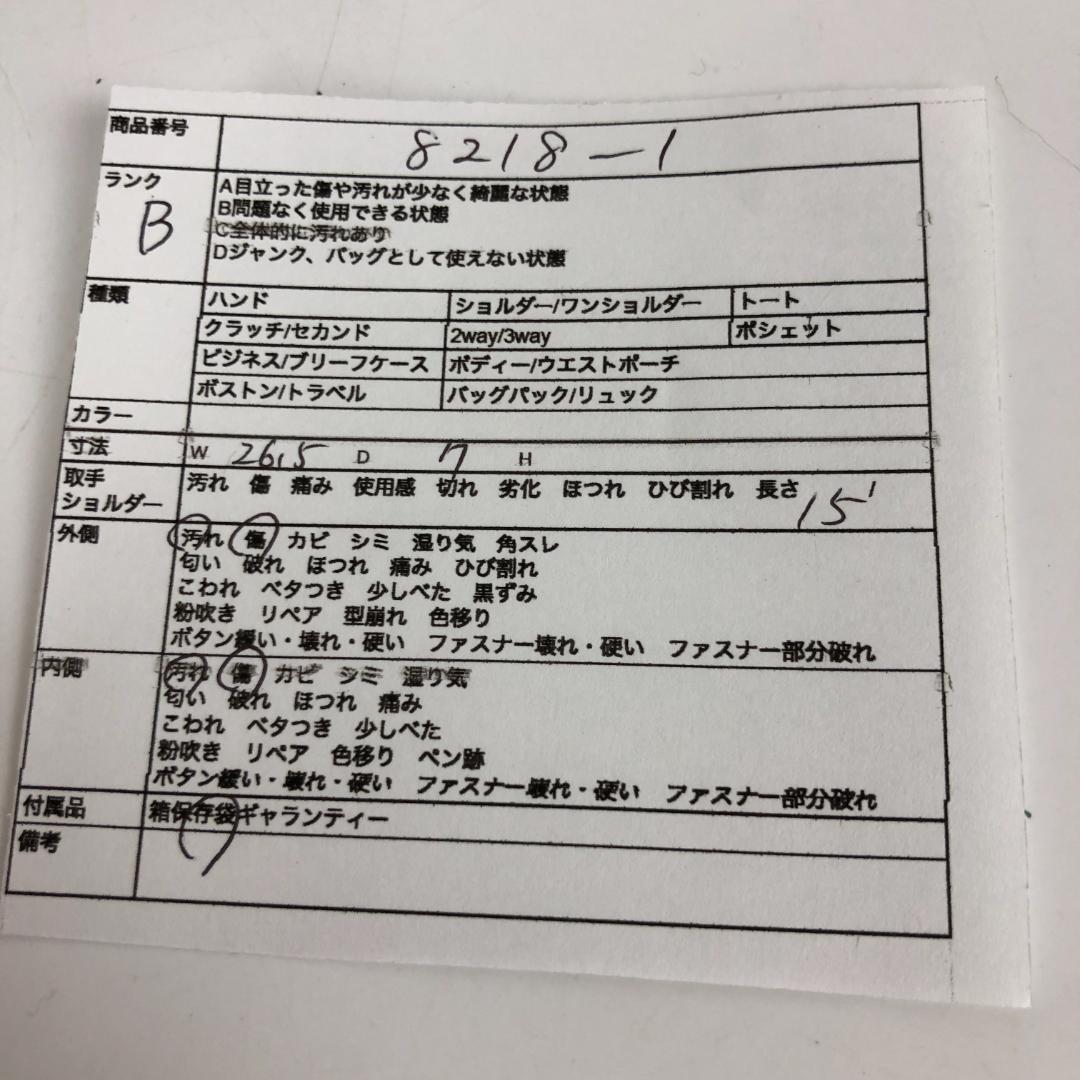 商品番号 8218-1
ランク B
A目立った傷や汚れが少なく綺麗な状態
B問題なく使用できる状態
C全体的に汚れあり
Dジャンク、バッグとして使えない状態
種類 ハンド ショルダー/ワンショルダー トート
クラッチ/セカンド 2way/3way ポシェット
ビジネス/ブリーフケース ボディー/ウエストポーチ
ボストン/トラベル バッグパック/リュック
カラー
寸法 W 26.5 D 7 H
取手 汚れ 傷 痛み 使用感 切れ 劣化 ほつれ ひび割れ 長さ 15
ショルダー
外側 汚れ 傷 カビ シミ 湿り気 角スレ
匂い 破れ ほつれ 痛み ひび割れ
こわれ ベタつき 少しべた 黒ずみ
粉吹き リペア 型崩れ 色移り
ボタン緩い・壊れ・硬い ファスナー壊れ・硬い ファスナー部分破れ
内側 汚れ 傷 カビ シミ 湿り気
匂い 破れ ほつれ 痛み
こわれ ベタつき 少しべた
粉吹き リペア 色移り ペン跡
ボタン緩い・壊れ・硬い ファスナー壊れ・硬い ファスナー部分破れ
付属品 箱保存袋ギャランティー
備考